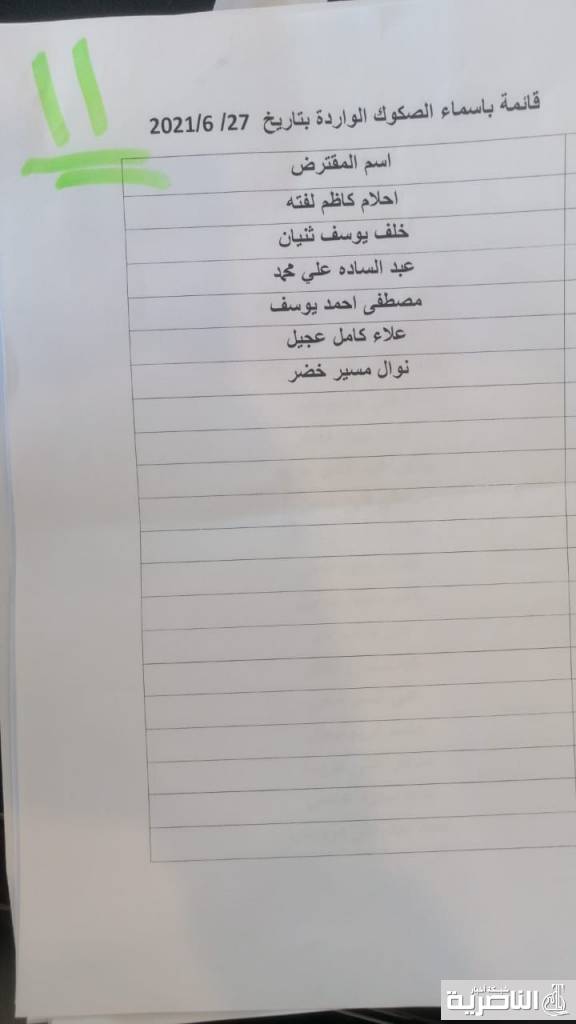 ١١
قائمة باسماء الصكوك الواردة بتاريخ 27/ 2021/6
اسم المقترض
احلام كاظم لفته
خلف يوسف ثنيان
عبد الساده علي محمد
مصطفى احمد يوسف
علاء كامل عجيل
نوال مسير خضر
شبكة اخبار
الناصرية